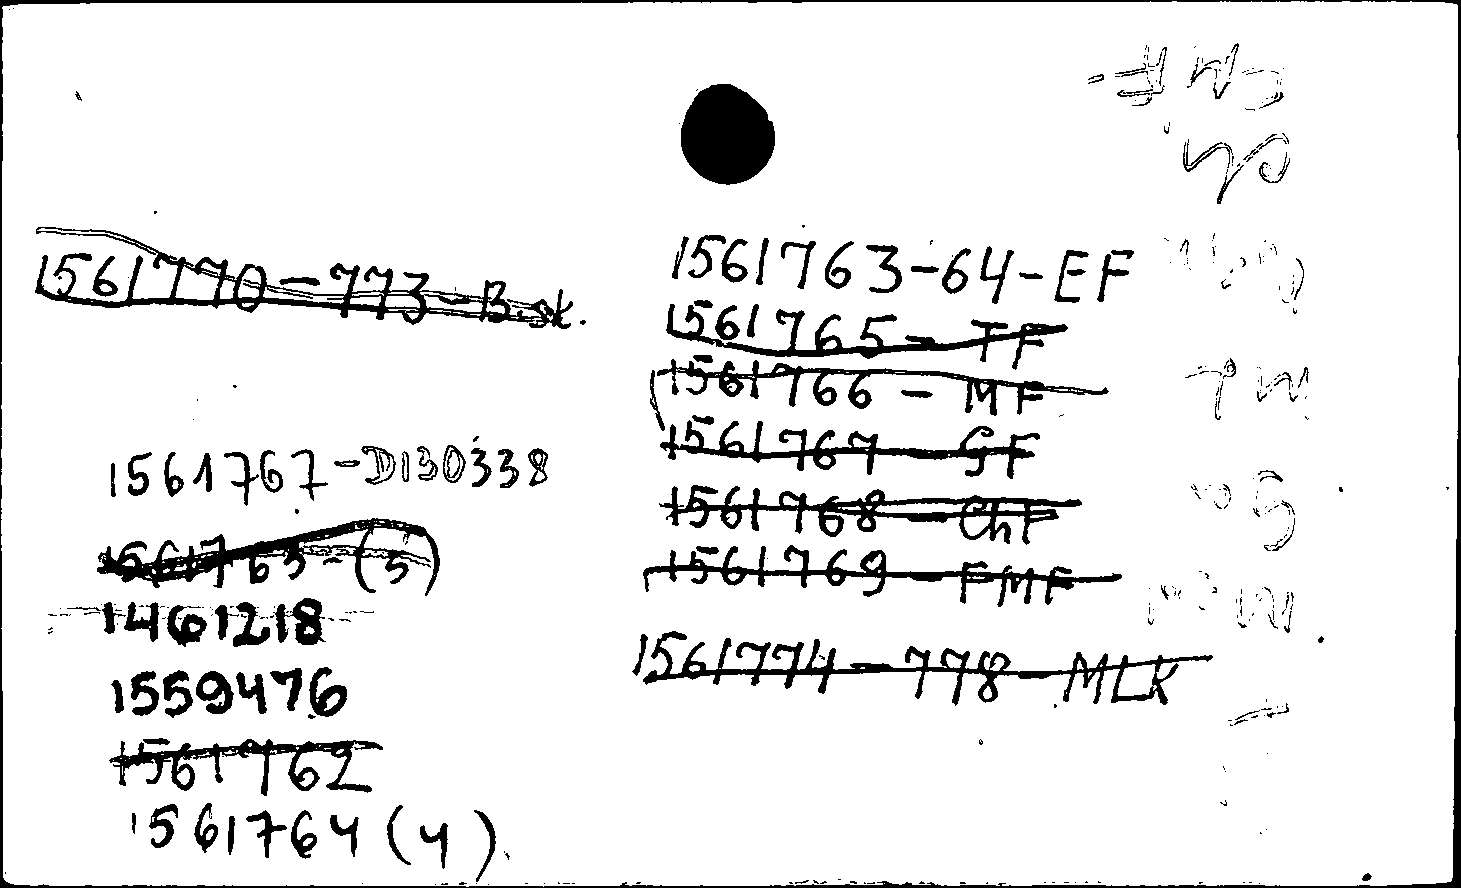 1561770-773-B.sk.
1561767-D130338
1561763-(5)
1461218
1559476
1561762
1561764 (4)
1561763-64-EF
1561765- TF
1561766 - MF
1561767 - GF
1561768 - ChF
1561769 - FMF
1561774-778-MLK